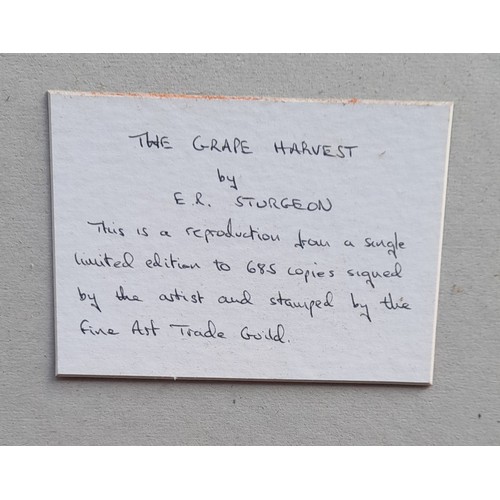 THE GRAPE HARVEST
by
E.R. STURGEON
This is a reproduction from a single
limited edition to 685 copies signed
by the artist and stamped by the
Fine Art Trade Guild.